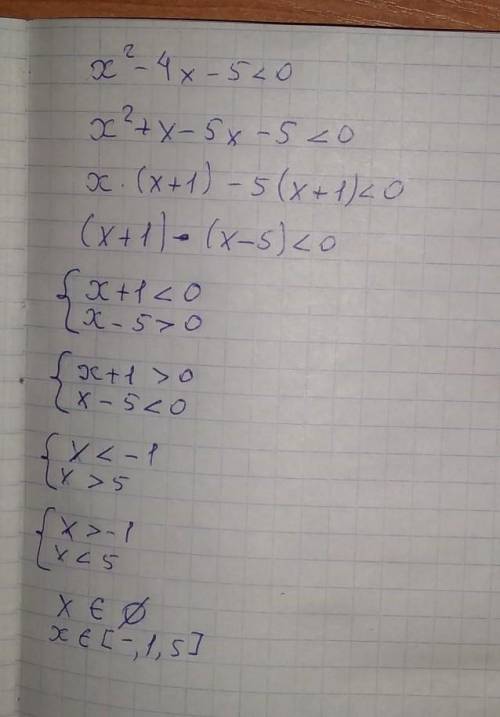 x² - 4x - 5 < 0
x² + x - 5x - 5 < 0
x · (x+1) - 5(x+1) < 0
(x+1) - (x-5) < 0
{ x+1 < 0
x - 5 > 0
{ x+1 > 0
x - 5 < 0
{ x < -1
x > 5
{ x > -1
x < 5
x ∈ ∅
x ∈ [-,1,5]